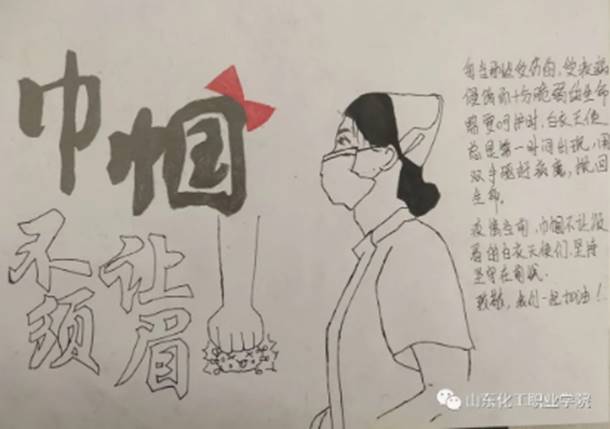 巾帼
不让
须眉
每当那些受伤的,受疾病
侵害而十分脆弱的生命
需要呵护时,白衣天使
总是第一时间出现,用
双手驱赶病魔,挽回
生命。
疫情当前,巾帼不让须
眉的白衣天使们,坚持
坚守在前线。
致敬,我们一起加油!
山东化工职业学院